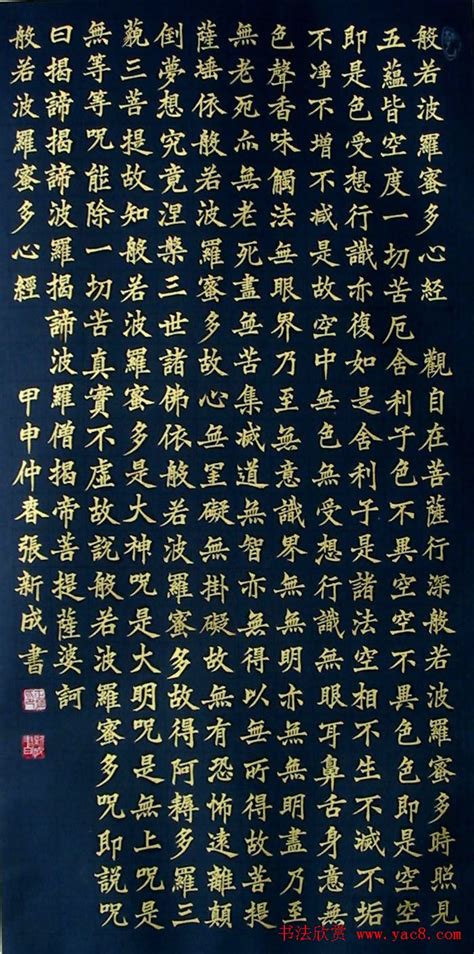 般若波羅蜜多心経 觀自在菩薩行深般若波羅蜜多時照見
五蘊皆空度一切苦厄舍利子色不異空空不異色色即是空空
即是色受想行識亦復如是舍利子是諸法空相不生不滅不垢
不凈不增不减是故空中無色無受想行識無眼耳鼻舌身意無
色聲香味觸法無眼界乃至無意識界無無明亦無無明盡乃至
無老死亦無老死盡無苦集滅道無智亦無得以無所得故菩提
薩埵依般若波羅蜜多故心無罣礙無掛礙故無有恐怖遠離顛
倒夢想究竟涅槃三世諸佛依般若波羅蜜多故得阿耨多羅三
藐三菩提故知般若波羅蜜多是大神呪是大明呪是無上呪是
無等等呪能除一切苦真實不虛故說般若波羅蜜多呪即説呪
曰揭諦揭諦波羅揭諦波羅僧揭帝菩提薩婆訶
般若波羅蜜多心經 甲申仲春張新成書
书法欣赏 www.yac8.com